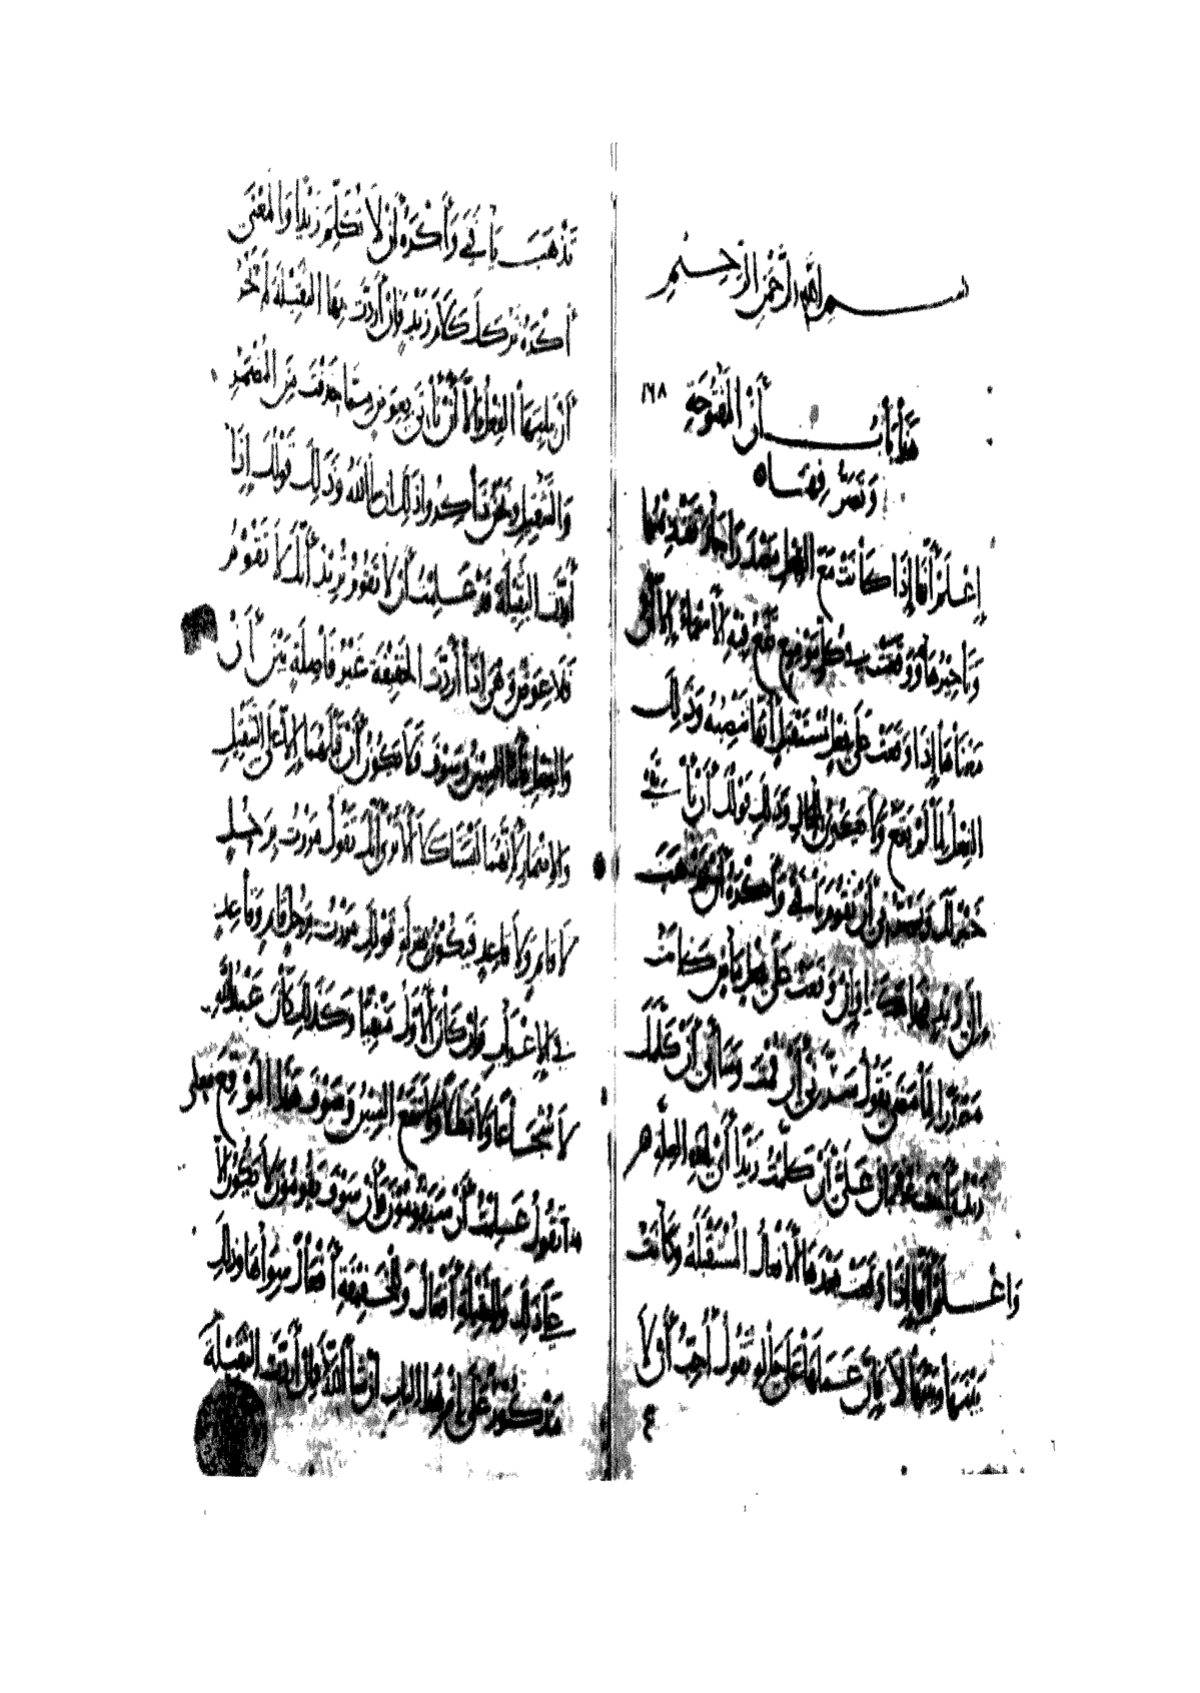 بسم الله الرحمن الرحيم
١٦٨
هذا باب أن المفتوحة
وتصرفها
إعلم أنها إذا كانت مع الفعل مصدرا جاز تقديمها
وتأخيرها ووقعت في كل موضع تقع فيه الأسماء إلا أن
معناها إذا وقعت على فعل مستقبل أنها تنصبه وذلك
الفعل لما لم يقع ولا يكون للحال وذلك قولك أن تأتيني
خير لك ويسرني أن تقوم يا فتى وأكره أن تذهب
إلى زيد فهذا هكذا وإن وقعت على فعل ماض كانت
مصدرا لما مضى تقول سرني أن قمت وساءني أن كلمك
زيد وأنت غضبان على أن كلمت زيدا أي لهذه العلة
واعلم أنها إذا وقعت بعدها الأفعال المستقبلة وكانت
بينها وبينها لا فإن عملها على حاله تقول أحب أن لا
٤
تذهب يا فتى وأكره أن لا تكلم زيدا والمعنى
أكره تركك كلام زيد فإن أردت بها الثقيلة لم يجز
أن يليها الفعل إلا أن تأتي بعوض مما حذفت من المضمر
والتثقيل ونحن ذاكروا ذلك إن شاء الله وذلك قولك إذا
أردت الثقيلة قد علمت أن لا تقوم تريد أنك لا تقوم
فلا عوض وهي إذا أردت الخفيفة غير فاصلة بين أن
والفعل فأما السين وسوف فلا تكون أن قبلهما إلا على التثقيل
والإضمار لأنهما ليستا كلا ألا ترى أنك تقول مررت برجل
لا قائم ولا قاعد فيكون بمنزلة قولك مررت برجل قائم وقاعد
في الإعراب وإن كان الأول منفيا وكذلك كان عبد الله
لا شجاعا ولا بطلا ولا تقع السين وسوف هذا الموقع فعلى
هذا تقول علمت أن سيقومون وأن سوف يقومون لا يكون إلا
على ذلك وللثقيلة أفعال وللخفيفة أفعال سواها وذلك
مذكور على إثر هذا الباب إن شاء الله فإن أردت الثقيلة